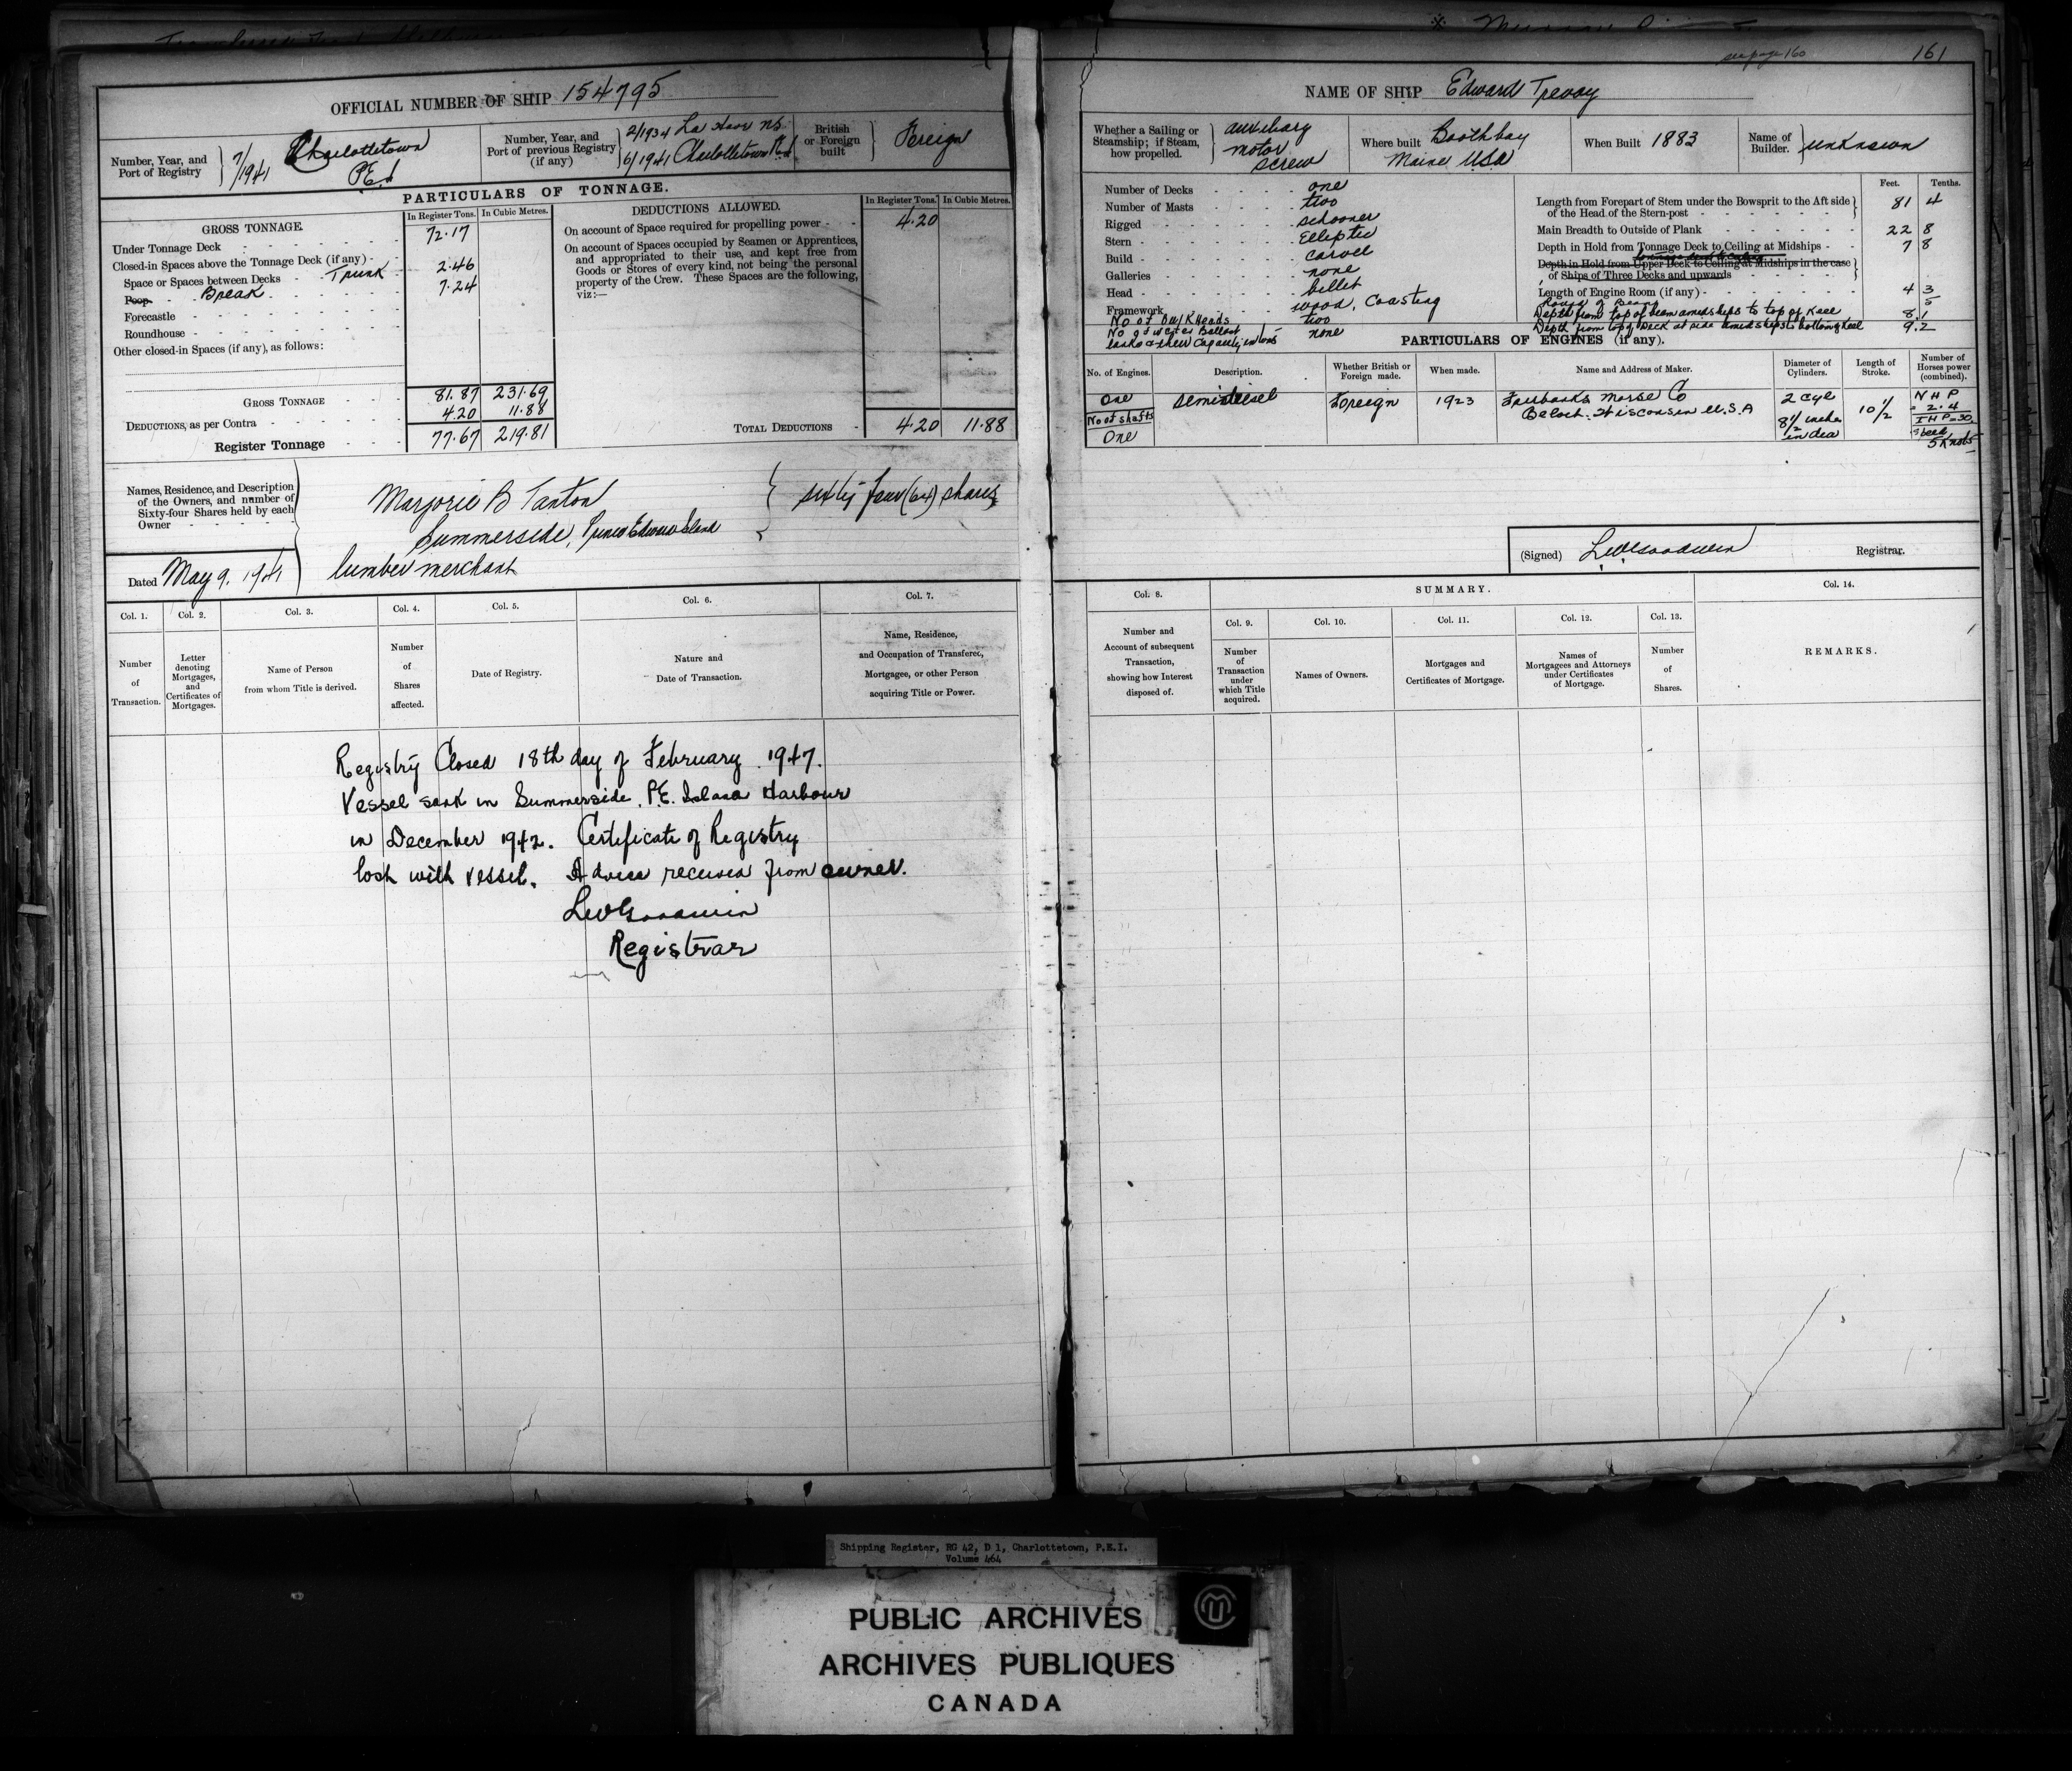 see page 160
161
OFFICIAL NUMBER OF SHIP 154795
Number, Year, and Port of Registry
7/1941 Charlottetown
P.E.I
Number, Year, and Port of previous Registry (if any)
2/1934 La Have NS
6/1941 Charlottetown P.E.I
British or Foreign built
Foreign
PARTICULARS OF TONNAGE.
GROSS TONNAGE.
In Register Tons. In Cubic Metres.
Under Tonnage Deck 72.17
Closed-in Spaces above the Tonnage Deck (if any)
Space or Spaces between Decks Trunk 2.46
Poop Break 7.24
Forecastle
Roundhouse
Other closed-in Spaces (if any), as follows:
GROSS TONNAGE 81.87 231.69
DEDUCTIONS, as per Contra 4.20 11.88
Register Tonnage 77.67 219.81
DEDUCTIONS ALLOWED.
In Register Tons. In Cubic Metres.
On account of Space required for propelling power 4.20
On account of Spaces occupied by Seamen or Apprentices,
and appropriated to their use, and kept free from
Goods or Stores of every kind, not being the personal
property of the Crew. These Spaces are the following,
viz:—
TOTAL DEDUCTIONS 4.20 11.88
Names, Residence, and Description
of the Owners, and number of
Sixty-four Shares held by each
Owner
Marjorie B Tanton
Summerside, Prince Edward Island
lumber merchant
sixty four (64) shares
Dated May 9, 1941
Col. 1. Col. 2. Col. 3. Col. 4. Col. 5. Col. 6. Col. 7.
Number of Transaction.
Letter denoting Mortgages, and Certificates of Mortgages.
Name of Person from whom Title is derived.
Number of Shares affected.
Date of Registry.
Nature and Date of Transaction.
Name, Residence, and Occupation of Transferee, Mortgagee, or other Person acquiring Title or Power.
Registry Closed 18th day of February 1947.
Vessel sank in Summerside, P.E. Island Harbour
in December 1942. Certificate of Registry
lost with vessel. Advice received from owner.
LWGoodwin
Registrar
NAME OF SHIP Edward Trevoy
Whether a Sailing or Steamship; if Steam, how propelled.
auxiliary
motor
screw
Where built Boothbay
Maine USA
When Built 1883
Name of Builder.
unknown
Number of Decks one
Number of Masts two
Rigged schooner
Stern Elliptic
Build carvel
Galleries none
Head billet
Framework wood, Coasting
No of Bulkheads two
No of water Ballast
tanks & their Capacity in tons none
Feet. Tenths.
Length from Forepart of Stem under the Bowsprit to the Aft side of the Head of the Stern-post 81 4
Main Breadth to Outside of Plank 22 8
Depth in Hold from Tonnage Deck to Ceiling at Midships 7 8
Depth in Hold from Upper Deck to Ceiling at Midships in the case of Ships of Three Decks and upwards
Length of Engine Room (if any) 4 3
Round of Beam 5
Depth from top of beam amidships to top of keel 8.1
Depth from top of Deck at side amidships to bottom of keel 9.2
PARTICULARS OF ENGINES (if any).
No. of Engines. Description. Whether British or Foreign made. When made. Name and Address of Maker. Diameter of Cylinders. Length of Stroke. Number of Horses power (combined).
One semidiesel Foreign 1923 Fairbanks Morse Co
Beloit. Wisconsin U.S.A
2 Cyl
8 1/2 inches
in dia
10 1/2
N H P
= 2.4
I H P = 30
Speed
5 Knots
No of shafts
One
(Signed) LWGoodwin Registrar.
Col. 8.
SUMMARY.
Col. 14.
Col. 9. Col. 10. Col. 11. Col. 12. Col. 13.
Number and Account of subsequent Transaction, showing how Interest disposed of.
Number of Transaction under which Title acquired.
Names of Owners.
Mortgages and Certificates of Mortgage.
Names of Mortgagees and Attorneys under Certificates of Mortgage.
Number of Shares.
REMARKS.
Shipping Register, RG 42, D 1, Charlottetown, P.E.I.
Volume 464
PUBLIC ARCHIVES
ARCHIVES PUBLIQUES
CANADA